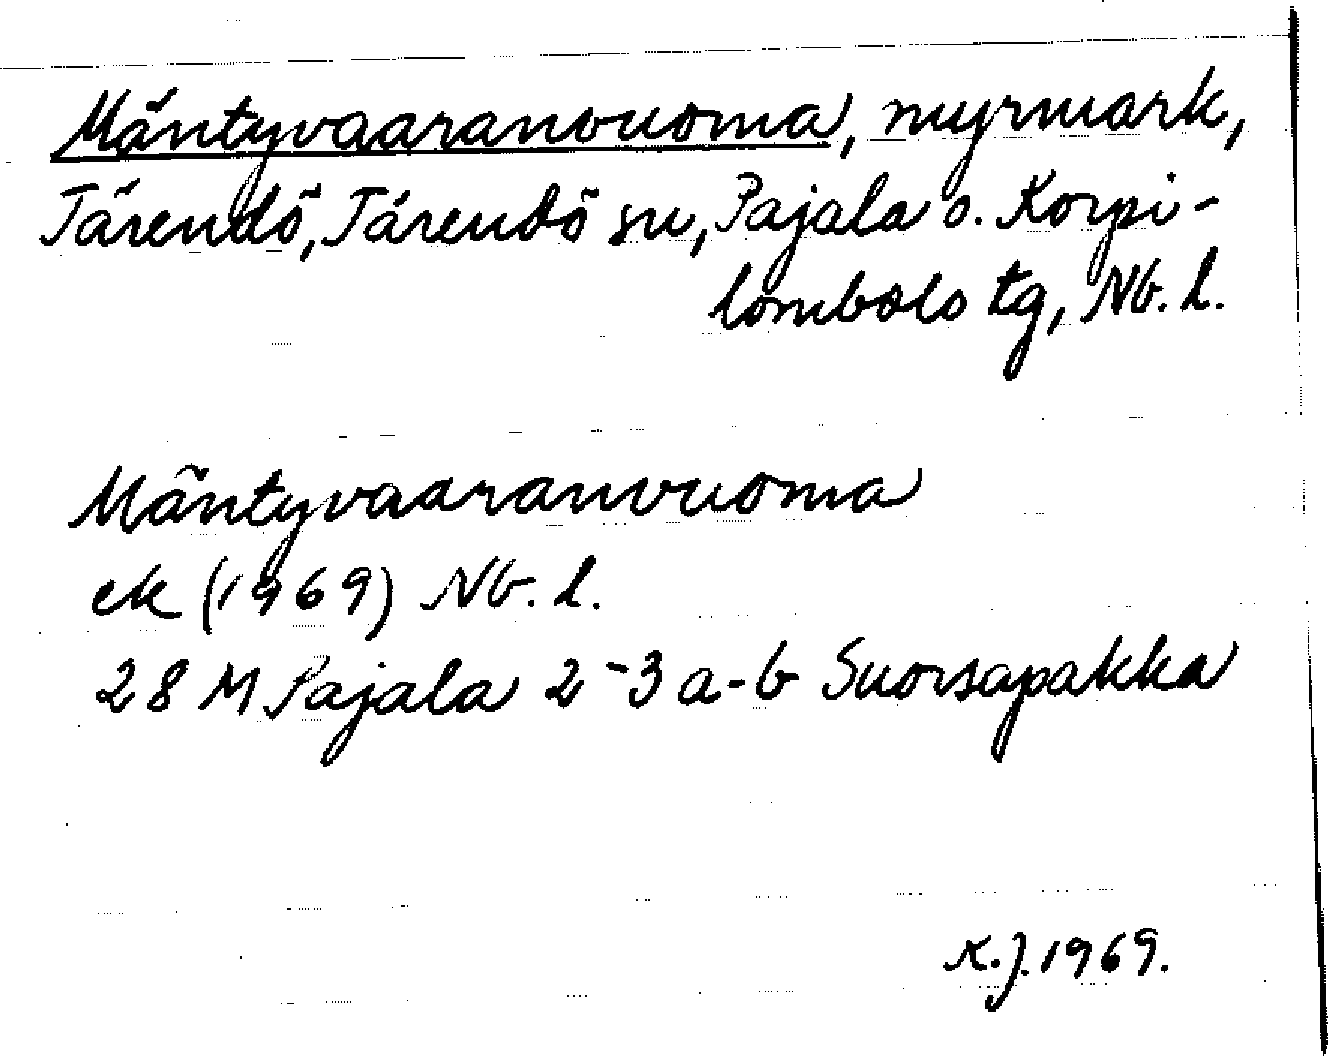 Mäntyvaaranvuoma, myrmark,
Tärendö, Tärendö sn, Pajala o. Korpi-
lombolo tg, Nb. l.
Mäntyvaaranvuoma
ek (1969) Nb. l.
28 M Pajala 2-3 a-b Suorsapakka
K.J. 1969.